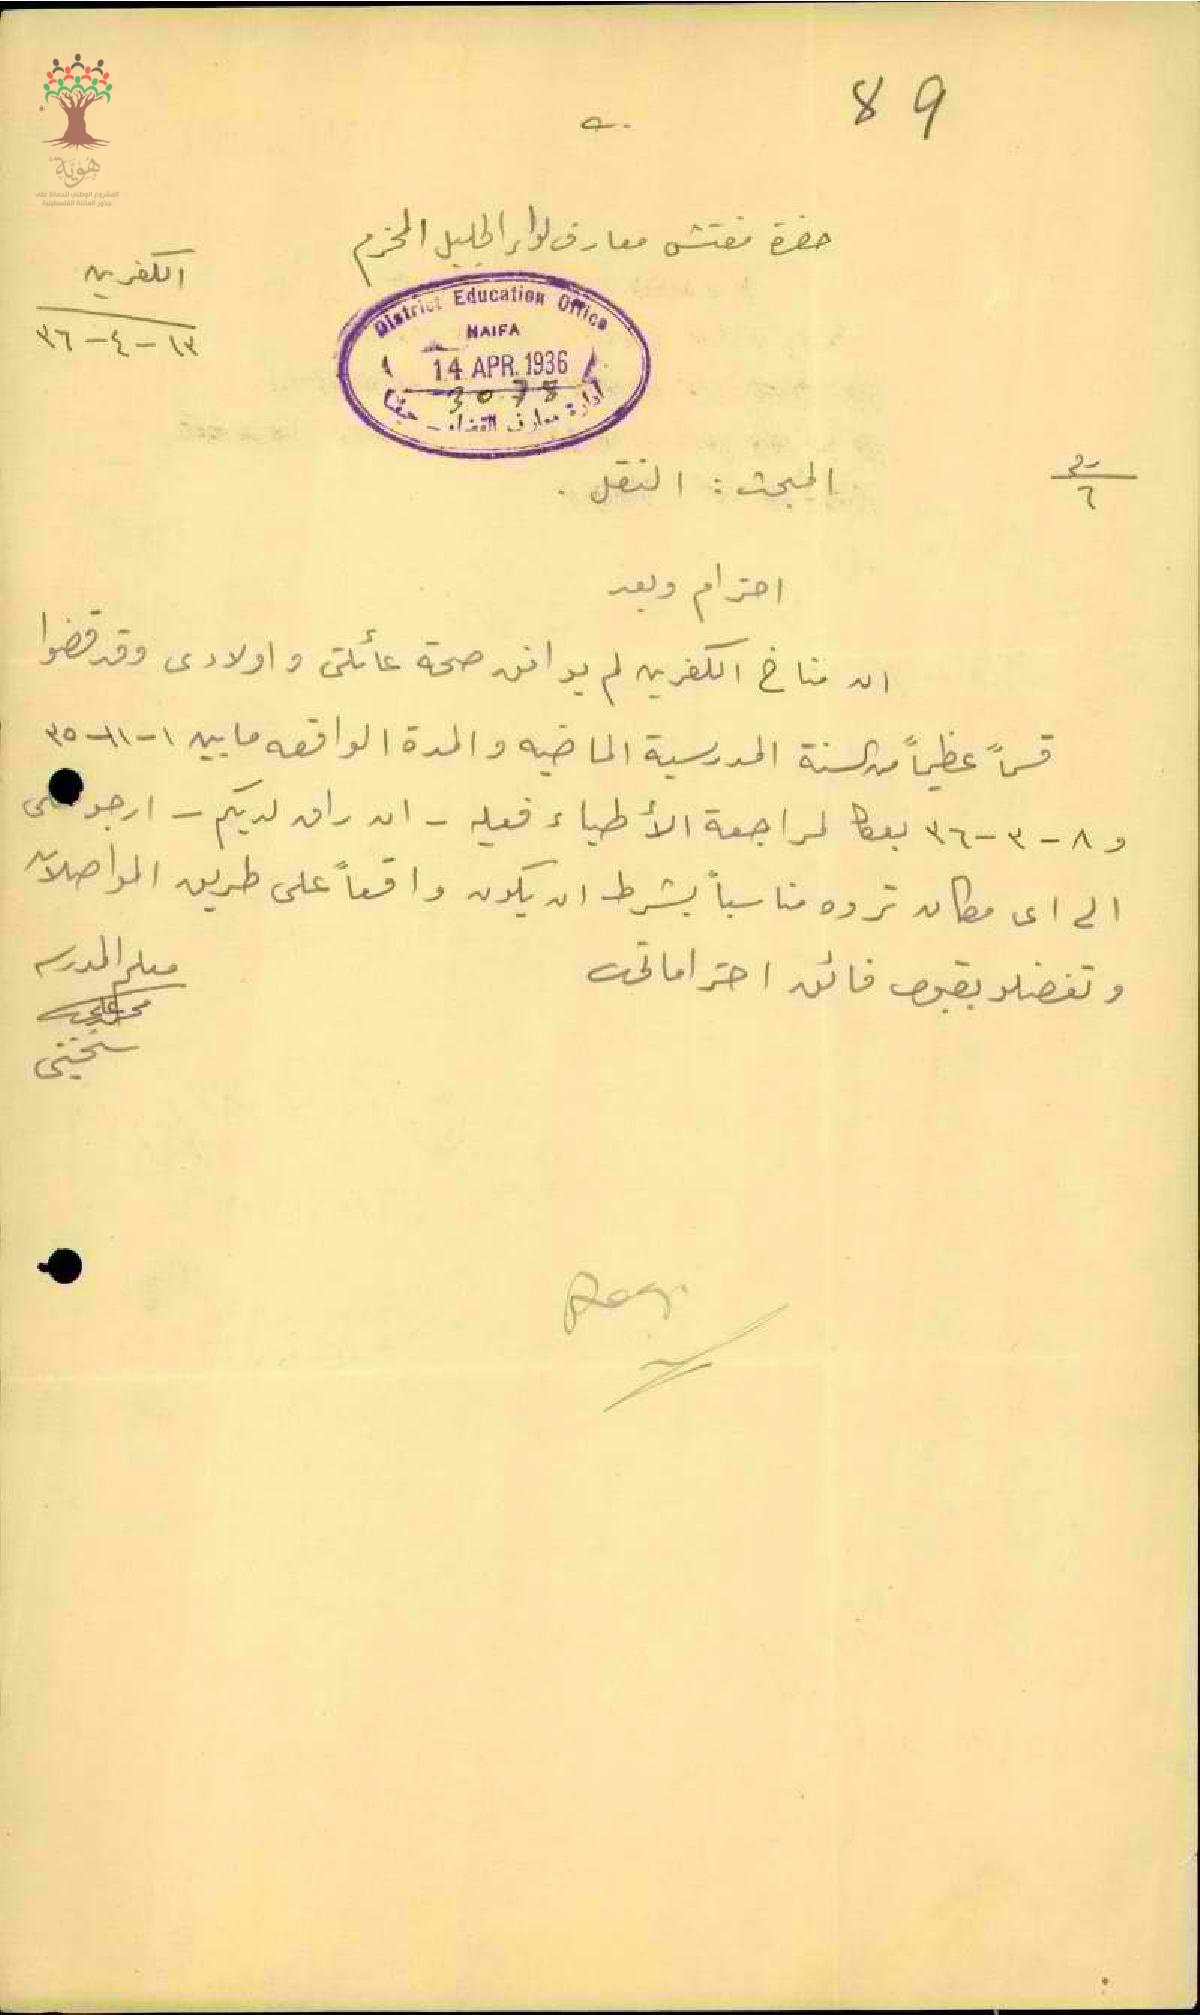 هُوِيَّة
المشروع الوطني للحفاظ على
جذور العائلة الفلسطينية
89
حضرة مفتش معارف لواء الجليل المحترم
الكفرين
١٣-٤-٣٦
District Education Office
HAIFA
14 APR. 1936
3078
ادارة معارف القضاء - حيفا
٦
المبحث : النقل .
احترام وبعد
ان مناخ الكفرين لم يوافق صحة عائلتي واولادى وقد قضوا
قسماً عظيماً من السنة المدرسية الماضيه والمدة الواقعه مابين ١-١١-٣٥
و ٨-٣-٣٦ بعكا لمراجعة الأطباء فعليه - ان راق لديكم - ارجو
الى اى مكان تروه مناسباً بشرط ان يكون واقعاً على طريق المواصلات
وتفضلو بقبول فائق احتراماتى
معلم المدرسه
محمد علي
سختيني